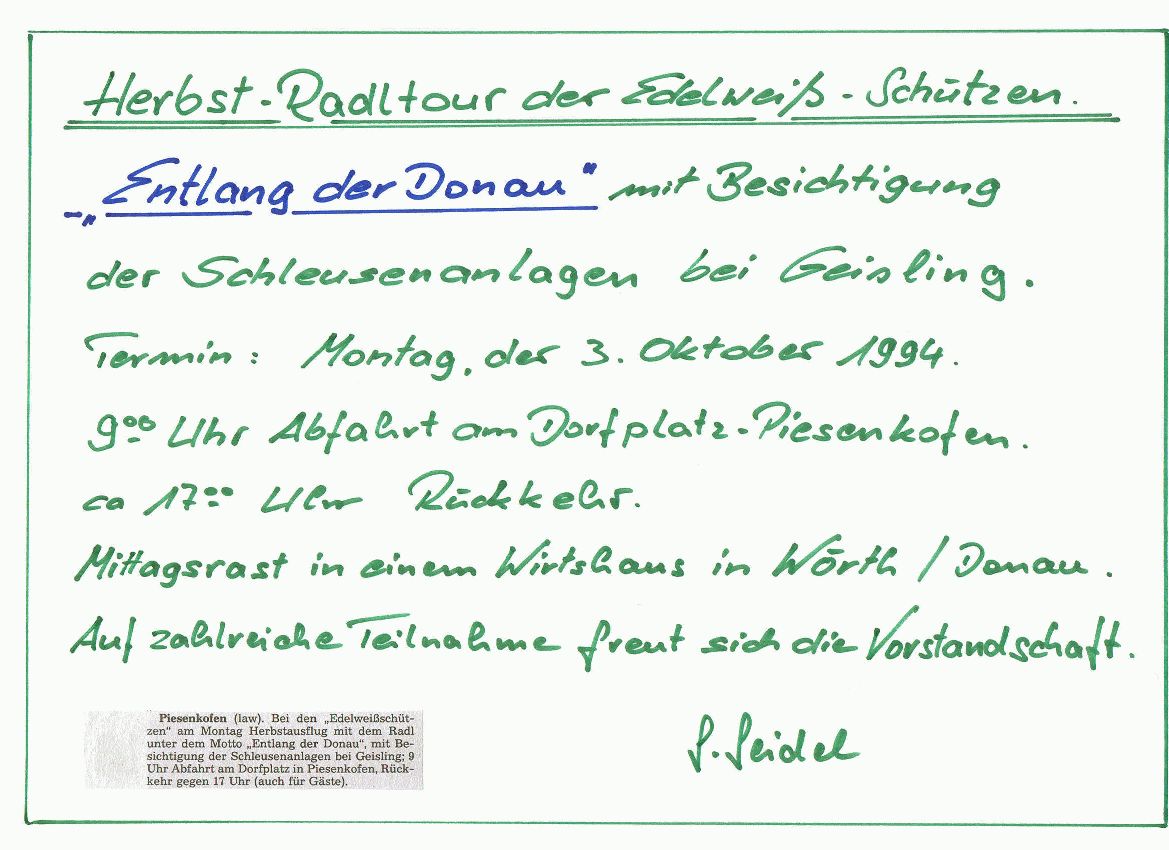 Herbst-Radltour der Edelweiß-Schützen.
-„Entlang der Donau" mit Besichtigung
der Schleusenanlagen bei Geisling.
Termin: Montag, der 3. Oktober 1994.
9⁰⁰ Uhr Abfahrt am Dorfplatz-Piesenkofen.
ca 17⁰⁰ Uhr Rückkehr.
Mittagsrast in einem Wirtshaus in Wörth / Donau.
Auf zahlreiche Teilnahme freut sich die Vorstandschaft.
Piesenkofen (law). Bei den „Edelweißschüt-
zen" am Montag Herbstausflug mit dem Radl
unter dem Motto „Entlang der Donau", mit Be-
sichtigung der Schleusenanlagen bei Geisling; 9
Uhr Abfahrt am Dorfplatz in Piesenkofen, Rück-
kehr gegen 17 Uhr (auch für Gäste).
S. Seidel